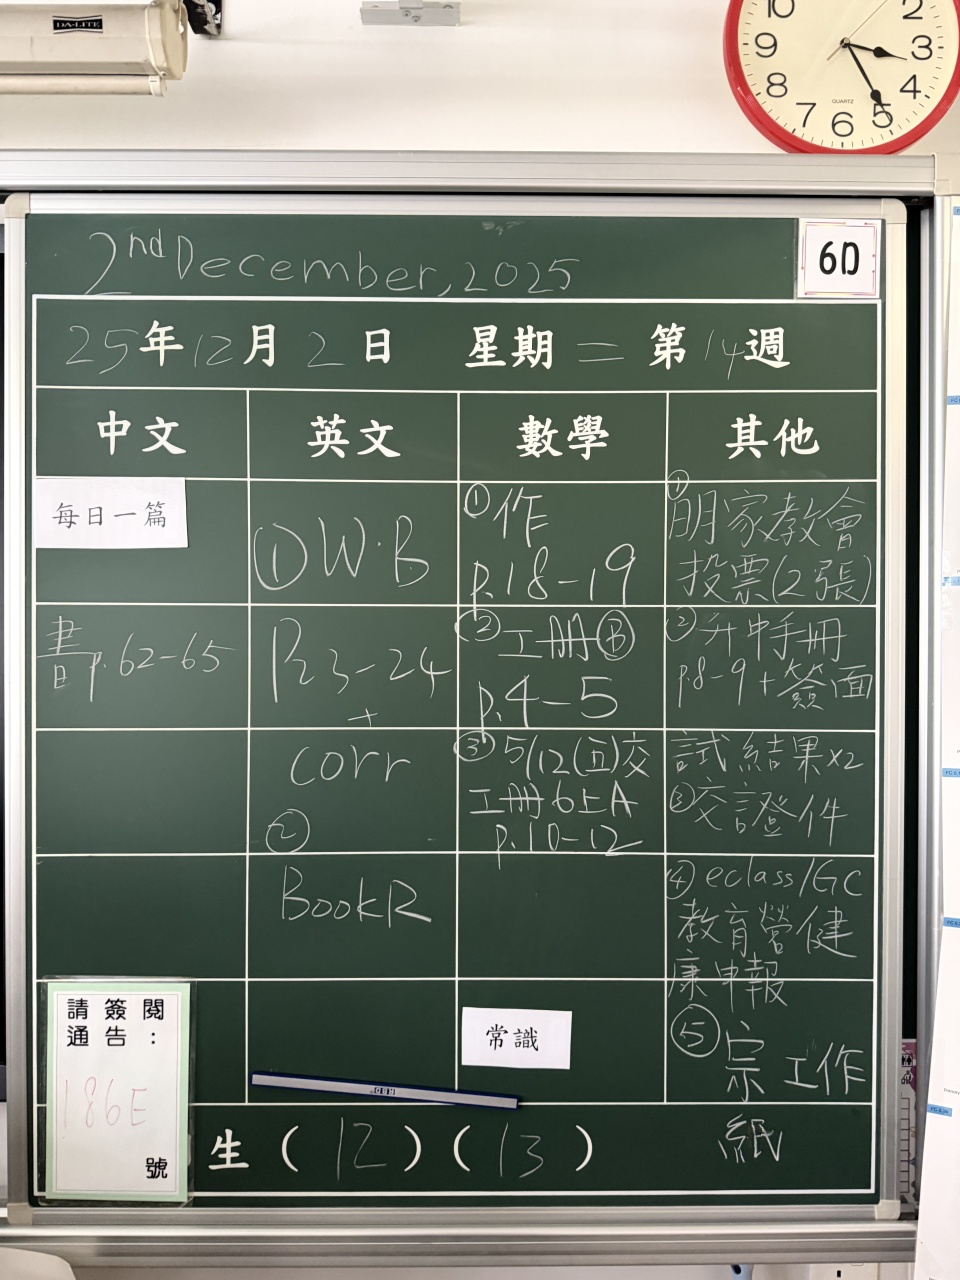 DA-LITE
10 2
9 3
8 4
7 6 5
QUARTZ
2nd December, 2025
6D
25年12月2日 星期二 第14週
中文
每日一篇
書p.62-65
英文
①W.B
P.23-24
+
corr
②
BookR
數學
①作
p.18-19
②工册Ⓑ
p.4-5
③5/12(五)交
工册6上A
p.10-12
常識
其他
①明家教會
投票(2張)
②升中手冊
p.8-9+簽面
試結果x2
③交證件
④eclass/GC
教育營健
康申報
⑤宗工作
紙
請簽閱
通告:
186E
號
生(12)(13)